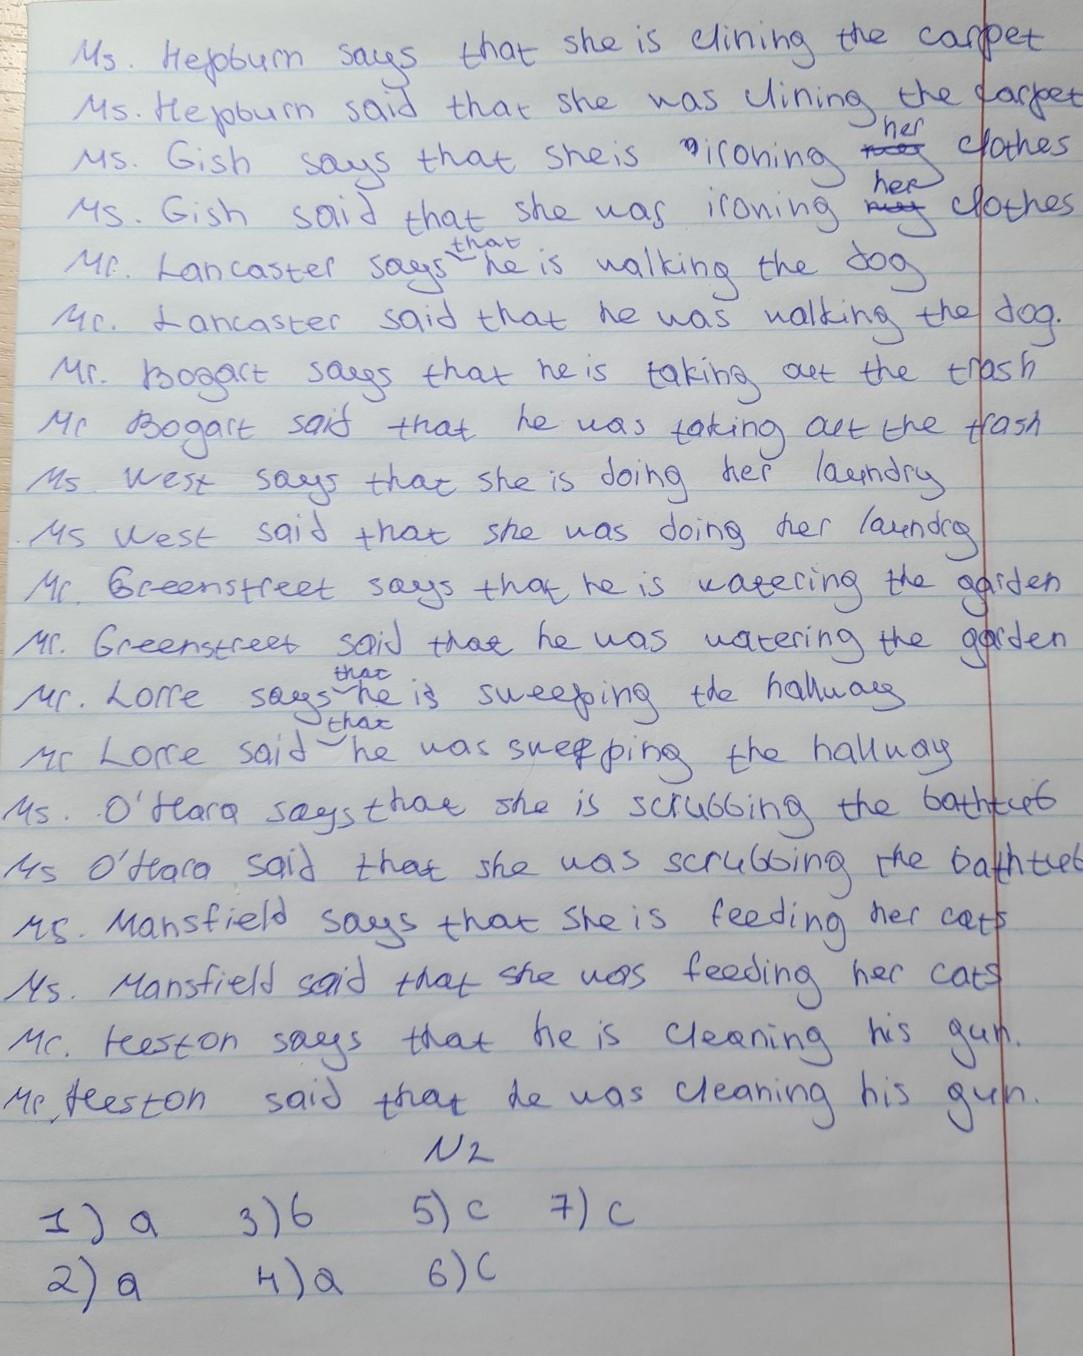 Ms. Hepburn says that she is clining the carpet
Ms. Hepburn said that she was clining the carpet
Ms. Gish says that she is ironing her clothes
Ms. Gish said that she was ironing her clothes
Mr. Lancaster says that he is walking the dog
Mr. Lancaster said that he was walking the dog.
Mr. Bogart says that he is taking out the trash
Mr Bogart said that he was taking out the trash
Ms West says that she is doing her laundry
Ms West said that she was doing her laundry
Mr. Greenstreet says that he is watering the garden
Mr. Greenstreet said that he was watering the garden
Mr. Lorre says that he is sweeping the hallway
Mr Lorre said that he was sweeping the hallway
Ms. O'Hara says that she is scrubbing the bathtub
Ms O'Hara said that she was scrubbing the bathtub
Ms. Mansfield says that she is feeding her cats
Ms. Mansfield said that she was feeding her cats
Mr. Heston says that he is cleaning his gun.
Mr. Heston said that he was cleaning his gun.
N2
1) a 3) b 5) c 7) c
2) a 4) a 6) c